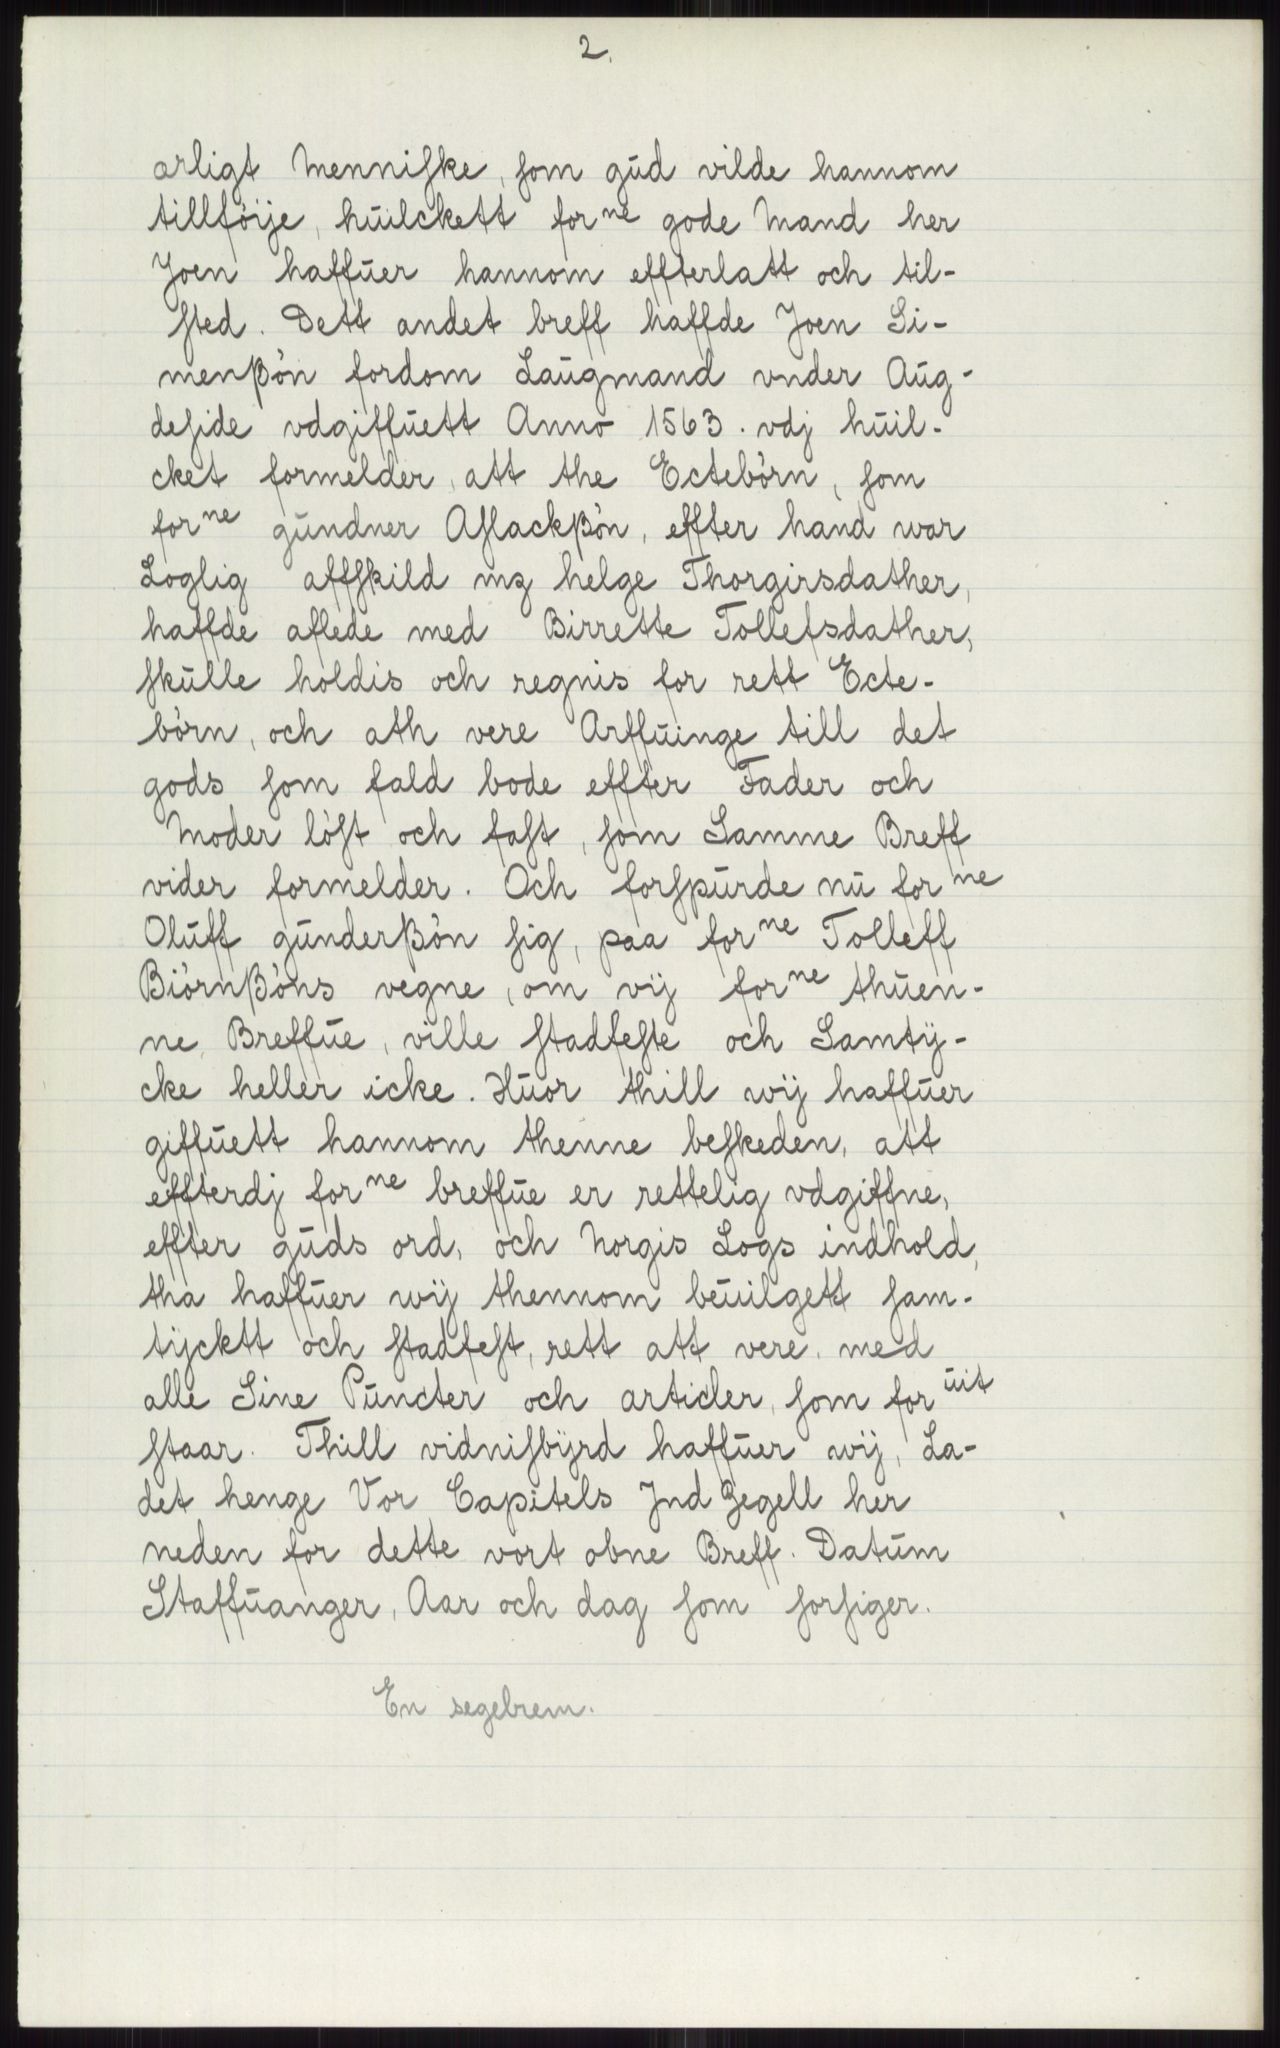 2.
arligt Menniske, som gud vilde hannom
tillföije, huilckett forne gode Mand her
Joen haffuer hannom effterlatt och til-
sted. Dett andet breff haffde Joen Si-
menßön fordom Laugmand vnder Aug-
deside vdgiffuett Anno 1563. vdj huil-
cket formelder, att the Ectebörn, som
forne gundner Aslackßön, effter hand war
Loglig affskild mz helge Thorgirsdather,
haffde aflede med Birrette Tollefsdather,
skulle holdis och regnis for rett Ecte-
börn, och ath vere Arffuinge till det
gods som fald bode effter Fader och
Moder löst och fast, som Samme Breff
vider formelder. Och forspurde nu forne
Oluff gunderßön sig, paa forne Tolleff
Biörnßöns vegne, om vij forne thuen-
ne Breffue, ville stadfeste och Samtÿ-
cke heller icke. Huor thill wij haffuer
giffuett hannom thenne beskeden, att
effterdj forne breffue er rettelig vdgiffne,
effter guds ord, och Norgis Logs indhold,
tha haffuer wij thennom beuilgett sam-
tijcktt och stadfest, rett att vere, med
alle Sine Puncter och articler, som for uit
staar. Thill vidnisbÿrd haffuer wij, La-
det henge Vor Capitels Jnd Zegell her
neden for dette vort obne Breff. Datum
Staffuanger, Aar och dag som forsiger.
En segelrem.